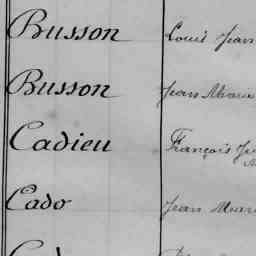 Busson Louis Jean
Busson Jean Marie
Cadieu François
Cado Jean Marie